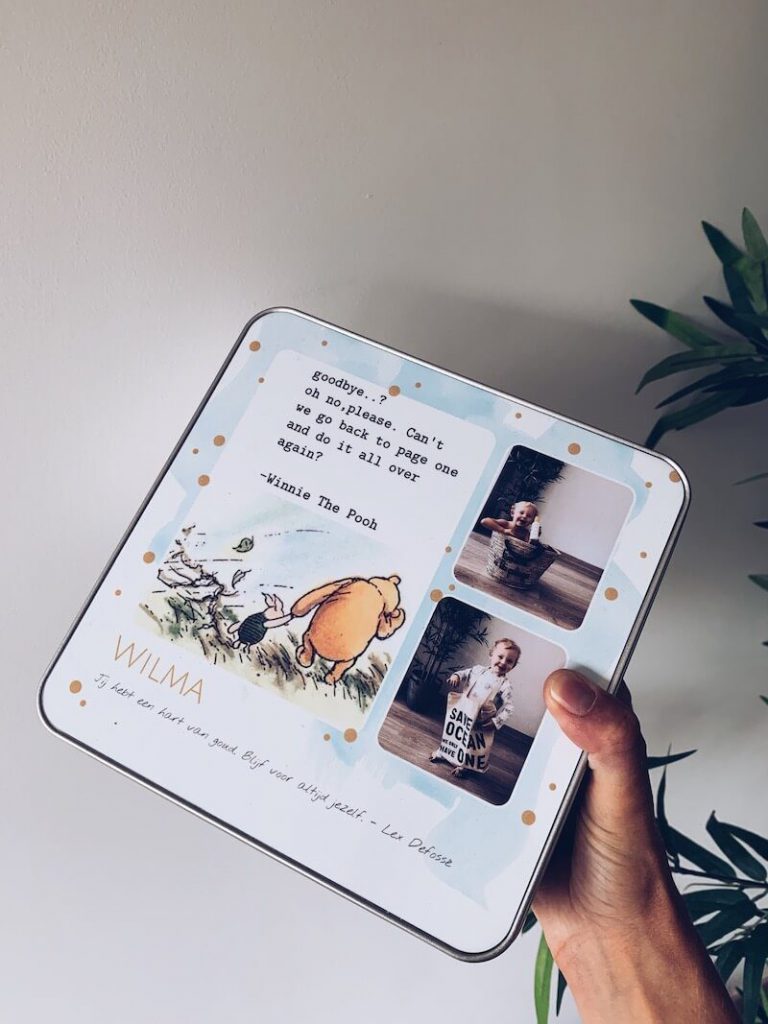 goodbye..?
oh no,please. Can't
we go back to page one
and do it all over
again?
-Winnie The Pooh
WILMA
Jij hebt een hart van goud. Blijf voor altijd jezelf. - Lex Defosse
SAVE
OCEAN
WE ONLY
HAVE ONE